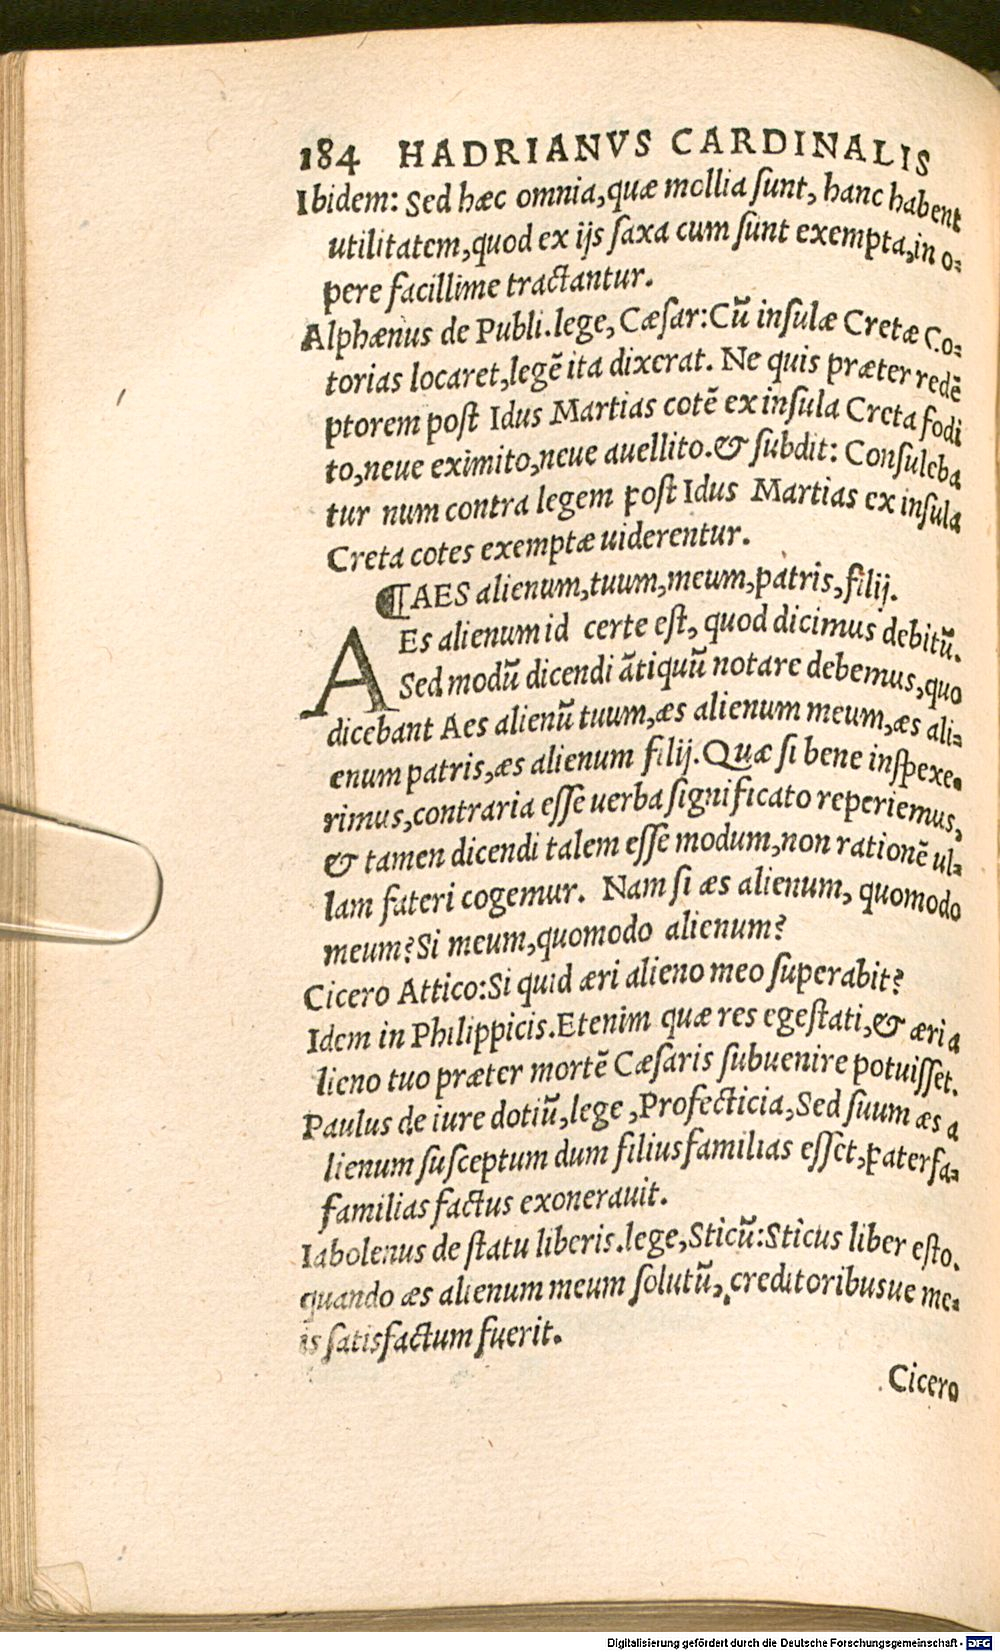 184 HADRIANVS CARDINALIS
Ibidem: Sed hæc omnia, quæ mollia ſunt, hanc habent
utilitatem, quod ex ijs ſaxa cum ſunt exempta, in o-
pere facillime tractantur.
Alphænus de Publi. lege, Cæſar: Cũ inſulæ Cretæ Co-
torias locaret, legẽ ita dixerat. Ne quis præter redẽ
ptorem poſt Idus Martias cotẽ ex inſula Creta fodi
to, neue eximito, neue auellito. & ſubdit: Conſuleba
tur num contra legem poſt Idus Martias ex inſula
Creta cotes exemptæ uiderentur.
¶AES alienum, tuum, meum, patris, filij.
AEs alienum id certe eſt, quod dicimus debitũ.
Sed modũ dicendi ãtiquũ notare debemus, quo
dicebant Aes alienũ tuum, æs alienum meum, æs ali-
enum patris, æs alienum filij. Quæ ſi bene inſpexe-
rimus, contraria eſſe uerba ſignificato reperiemus,
& tamen dicendi talem eſſe modum, non rationẽ ul-
lam fateri cogemur. Nam ſi æs alienum, quomodo
meum? Si meum, quomodo alienum?
Cicero Attico: Si quid æri alieno meo ſuperabit?
Idem in Philippicis. Etenim quæ res egeſtati, & æri a
lieno tuo præter mortẽ Cæſaris ſubuenire potuiſſet.
Paulus de iure dotiũ, lege, Profecticia, Sed ſuum æs a
lienum ſuſceptum dum filiusfamilias eſſet, paterfa-
familias factus exonerauit.
Iabolenus de ſtatu liberis. lege, Sticũ: Sticus liber eſto.
quando æs alienum meum ſolutũ, creditoribusue me-
is ſatisfactum fuerit.
Cicero
Digitalisierung gefördert durch die Deutsche Forschungsgemeinschaft - DFG